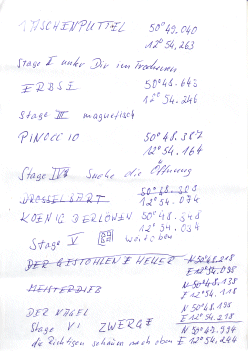 ASCHENPUTTEL 50° 49.040
12° 54.263
Stage II unter Dir im Trockenen
ERBSE 50° 48.643
12° 54.246
Stage III magnetisch
PINOCCIO 50° 48.387
12° 54.164
Stage IV Suche die Öffnung
DROSSELBART 50° 48.303
12° 54.074
KOENIG DER LÖWEN 50° 48.348
12° 54.034
Stage V
DER GESTOHLENE HELLER N 50° 48.218
E 12° 54.098
MEISTERDIEB N 50° 48.138
E 12° 54.118
DER NAGEL N 50° 48.198
E 12° 54.218
Stage VI ZWERGE N 50° 47.994
die Richtigen schauen nach oben E 12° 54.244